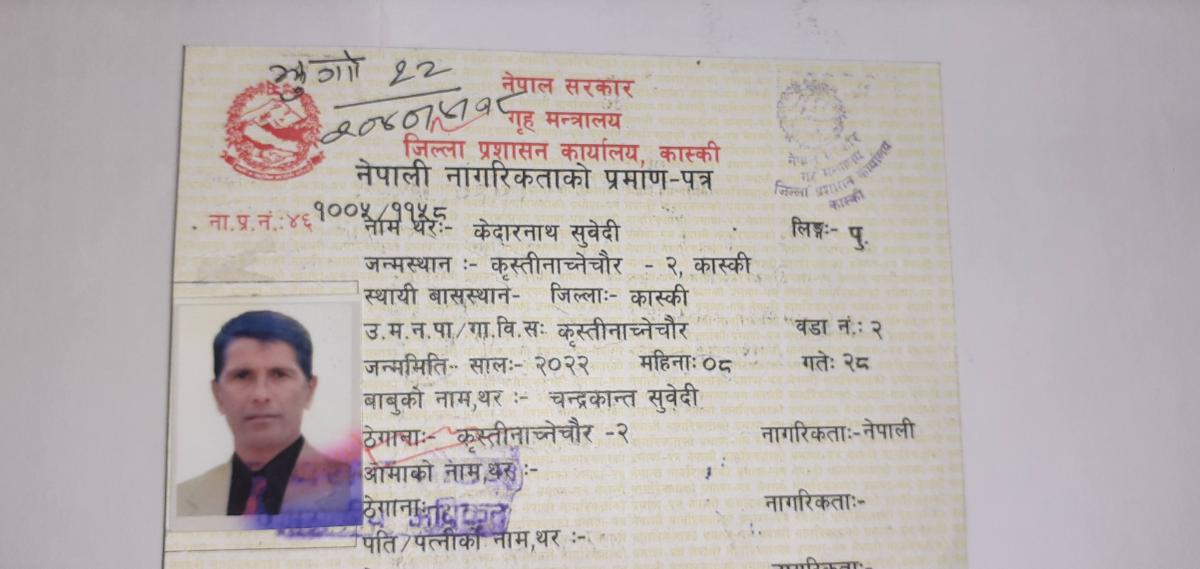 नेपाल सरकार
गृह मन्त्रालय
जिल्ला प्रशासन कार्यालय, कास्की
नेपाली नागरिकताको प्रमाण-पत्र
जिल्ला प्रशासन कार्यालय
कास्की
ना.प्र.नं.:४६ १००५/११५८
नाम थरः- केदारनाथ सुवेदी लिङ्गः- पु.
जन्मस्थान ः- कृस्तीनाच्नेचौर - २, कास्की
स्थायी बासस्थान- जिल्लाः- कास्की
उ.म.न.पा/गा.वि.सः कृस्तीनाच्नेचौर वडा नं.: २
जन्ममिति- सालः- २०२२ महिनाः ०८ गतेः २८
बाबुको नाम,थर ः- चन्द्रकान्त सुवेदी
ठेगानाः- कृस्तीनाच्नेचौर -२ नागरिकताः-नेपाली
आमाको नाम,थर ः-
ठेगानाः नागरिकताः-
पति/पत्नीको नाम,थर ः-
नागरिकताः-